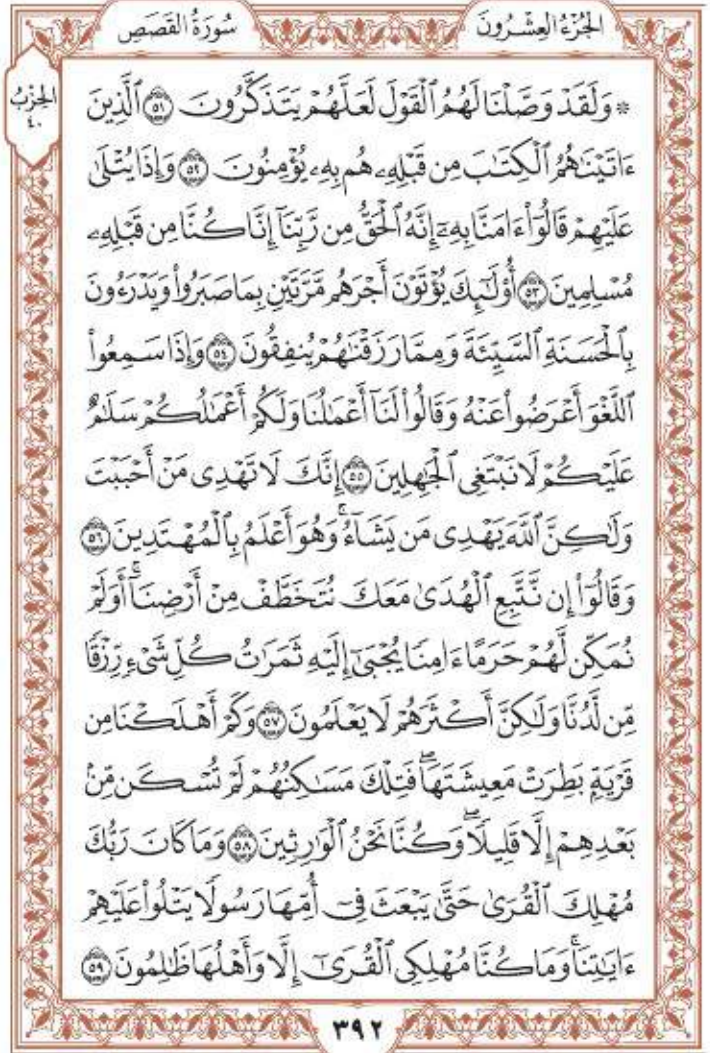 الجُزْءُ العِشْرُونَ سُورَةُ القَصَصِ
الحِزْبُ
٤٠
۞ وَلَقَدْ وَصَّلْنَا لَهُمُ ٱلْقَوْلَ لَعَلَّهُمْ يَتَذَكَّرُونَ ٥١ ٱلَّذِينَ
ءَاتَيْنَٰهُمُ ٱلْكِتَٰبَ مِن قَبْلِهِۦ هُم بِهِۦ يُؤْمِنُونَ ٥٢ وَإِذَا يُتْلَىٰ
عَلَيْهِمْ قَالُوٓا۟ ءَامَنَّا بِهِۦٓ إِنَّهُ ٱلْحَقُّ مِن رَّبِّنَآ إِنَّا كُنَّا مِن قَبْلِهِۦ
مُسْلِمِينَ ٥٣ أُو۟لَٰٓئِكَ يُؤْتَوْنَ أَجْرَهُم مَّرَّتَيْنِ بِمَا صَبَرُوا۟ وَيَدْرَءُونَ
بِٱلْحَسَنَةِ ٱلسَّيِّئَةَ وَمِمَّا رَزَقْنَٰهُمْ يُنفِقُونَ ٥٤ وَإِذَا سَمِعُوا۟
ٱللَّغْوَ أَعْرَضُوا۟ عَنْهُ وَقَالُوا۟ لَنَآ أَعْمَٰلُنَا وَلَكُمْ أَعْمَٰلُكُمْ سَلَٰمٌ
عَلَيْكُمْ لَا نَبْتَغِى ٱلْجَٰهِلِينَ ٥٥ إِنَّكَ لَا تَهْدِى مَنْ أَحْبَبْتَ
وَلَٰكِنَّ ٱللَّهَ يَهْدِى مَن يَشَآءُ ۚ وَهُوَ أَعْلَمُ بِٱلْمُهْتَدِينَ ٥٦
وَقَالُوٓا۟ إِن نَّتَّبِعِ ٱلْهُدَىٰ مَعَكَ نُتَخَطَّفْ مِنْ أَرْضِنَآ ۚ أَوَلَمْ
نُمَكِّن لَّهُمْ حَرَمًا ءَامِنًا يُجْبَىٰٓ إِلَيْهِ ثَمَرَٰتُ كُلِّ شَىْءٍ رِّزْقًا
مِّن لَّدُنَّا وَلَٰكِنَّ أَكْثَرَهُمْ لَا يَعْلَمُونَ ٥٧ وَكَمْ أَهْلَكْنَا مِن
قَرْيَةٍۭ بَطِرَتْ مَعِيشَتَهَا ۖ فَتِلْكَ مَسَٰكِنُهُمْ لَمْ تُسْكَن مِّنۢ
بَعْدِهِمْ إِلَّا قَلِيلًا ۖ وَكُنَّا نَحْنُ ٱلْوَٰرِثِينَ ٥٨ وَمَا كَانَ رَبُّكَ
مُهْلِكَ ٱلْقُرَىٰ حَتَّىٰ يَبْعَثَ فِىٓ أُمِّهَا رَسُولًا يَتْلُوا۟ عَلَيْهِمْ
ءَايَٰتِنَا ۚ وَمَا كُنَّا مُهْلِكِى ٱلْقُرَىٰٓ إِلَّا وَأَهْلُهَا ظَٰلِمُونَ ٥٩
٣٩٢